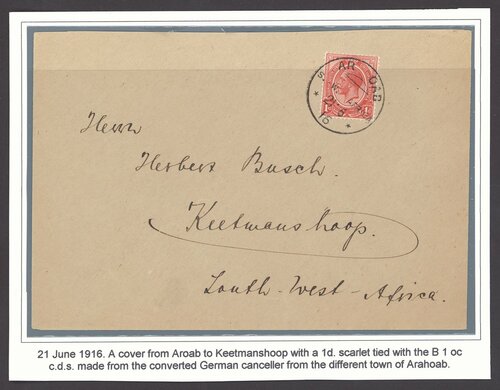 AR OAB
16
Herrn
Herbert Busch.
Keetmanshoop.
South-West-Africa.
21 June 1916. A cover from Aroab to Keetmanshoop with a 1d. scarlet tied with the B 1 oc
c.d.s. made from the converted German canceller from the different town of Arahoab.